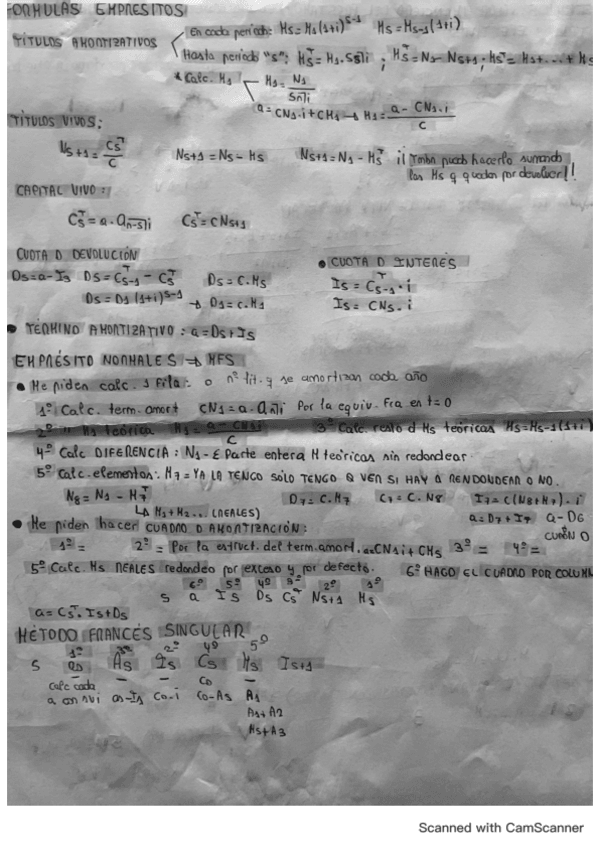 FORMULAS EMPRESITOS
TÍTULOS AMORTIZATIVOS
En cada periodo: Ms = M1(1+i)^s-1   Ms = Ms-1(1+i)
Hasta periodo "s": Ms^T = M1. Ss⌉i ; Ms^T = N1 - Ns+1 ; Ms^T = M1 + ... + Ms
* Calc. M1
M1 = N1 / Sn⌉i
a = CN1.i + CM1 → M1 = a - CN1.i / C
TÍTULOS VIVOS:
Ns+1 = Cs^T / C   Ns+1 = Ns - Ms   Ns+1 = N1 - Ms^T   ¡¡ Tmbn puedo hacerlo sumando las Ms q quedan por devolver!!
CAPITAL VIVO:
Cs^T = a. an-s⌉i   Cs^T = CNs+1
CUOTA D DEVOLUCIÓN
Ds = a - Is   Ds = Cs-1^T - Cs^T   Ds = C.Ms
Ds = D1 (1+i)^s-1 → D1 = C.M1
• CUOTA D INTERÉS
Is = Cs-1^T . i
Is = CNs. i
• TÉRMINO AMORTIZATIVO: a = Ds + Is
EMPRÉSITO NORMALES → MFS
• Me piden calc. 1 fila: o nº tit. q se amortizan cada año
1º Calc. term. amort   CN1 = a. an⌉i   Por la equiv. Fra en t=0
2º " M1 teórica   M1 = a - CN1i / C   3º Calc. resto d Ms teóricas Ms = Ms-1(1+i)
4º Calc DIFERENCIA: N1 - Σ Parte entera M teóricas sin redondear
5º Calc. elementos: M7 = YA LA TENGO SOLO TENGO Q VER SI HAY Q RENDONDEAR O NO.
N8 = N1 - M7^T   D7 = C.M7   C7 = C. N8   I7 = C(N8+M7). i
↳ M1 + M2... (REALES)   a = D7 + I7
• Me piden hacer CUADRO D AMORTIZACIÓN:
1º =   2º = Por la estruct. del term. amort. a = CN1i + CMs   3º =   4º =
5º Calc Ms REALES redondeo por exceso y por defecto.   6º HAGO EL CUADRO POR COLUMN
6º 5º 4º 3º 2º 1º
s a Is Ds Cs^T Ns+1 Ms
a = Cs^T. Is + Ds
MÉTODO FRANCÉS SINGULAR
1º 3º 2º 4º 5º
S as As Is Cs Ms Is+1
calc cada as-Is Co-i Co-As A1
A1+A2
Ms+A3
Scanned with CamScanner